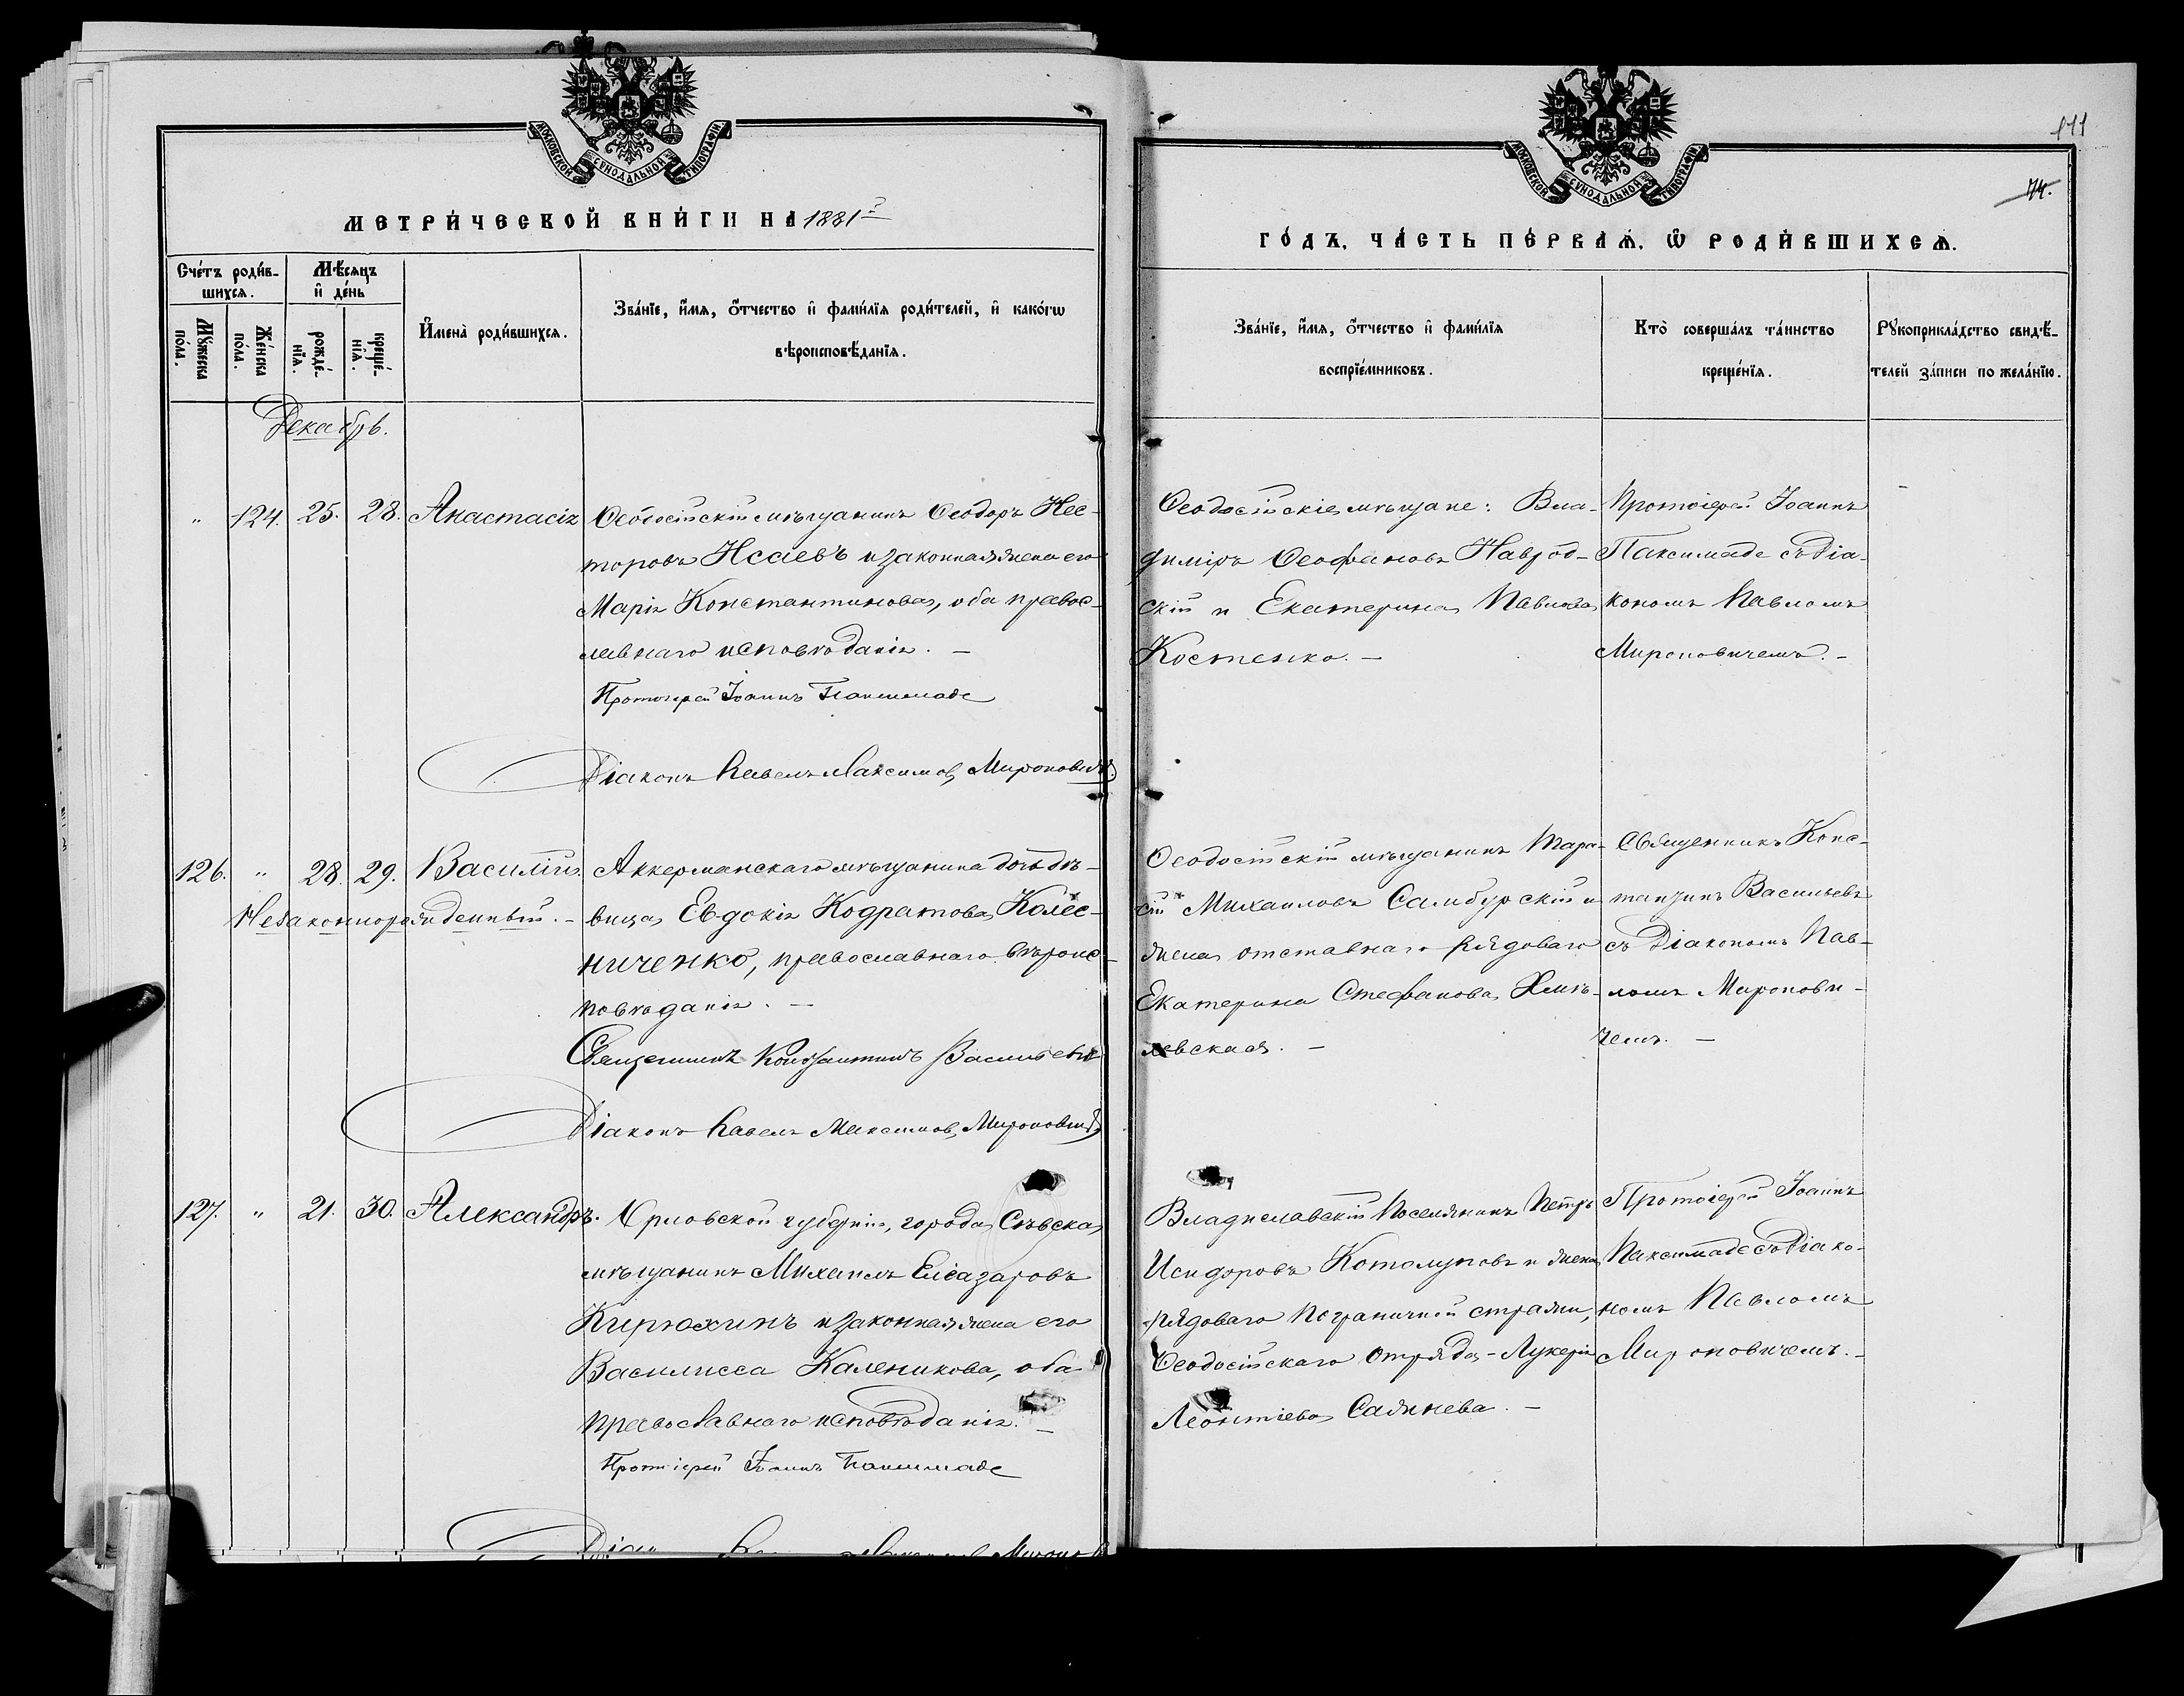 МОСКОВСКОЙ СѴНОДАЛЬНОЙ ТИПОГРАФІИ
МЕТРИ́ЧЕСКОЙ КНИ́ГИ НА 1881й
Сче́тъ роди́в-
шихсѧ.
Мѣ́сѧцъ
и҆ де́нь
Мꙋ́жеска
по́ла.
Же́нска
по́ла.
рожде́-
нїѧ.
креще́-
нїѧ.
И҆мена̀ роди́вшихсѧ.
Зва́нїе, и҆́мѧ, ѻ҆́тчество и҆ фами́лїѧ роди́телей, и҆ како́гѡ
вѣроисповѣ́данїѧ.
Декабрь.
" 124. 25. 28. Анастасія
Ѳеодосійскій мѣщанинъ Ѳеодоръ Нес-
торовъ Исаевъ и законная жена его
Марія Константинова, оба правос-
лавнаго исповѣданія. —
Протоіерей Іоаннъ Паксимаде
Діаконъ Павелъ Максимов. Мироновичъ
126. " 28. 29. Василій.
Незаконнорожденный. —
Аккерманскаго мѣщанина дочь дѣ-
вица Евдокія Кодратова Колес-
ниченко, православнаго вѣроис-
повѣданія. —
Священникъ Константинъ Васильевъ
Діаконъ Павелъ Максимов. Мироновичъ
127. " 21. 30. Александръ.
Орловской губерніи, города Сѣвска,
мѣщанинъ Михаилъ Елеазаровъ
Кирюхинъ и законная жена его
Василисса Каленикова, оба
православнаго исповѣданія. —
Протоіерей Іоаннъ Паксимаде
МОСКОВСКОЙ СѴНОДАЛЬНОЙ ТИПОГРАФІИ
111
74.
ГО́ДЪ, ЧА́СТЬ ПЕ́РВАѦ, Ѡ҆ РОДИ́ВШИХСѦ.
Зва́нїе, и҆́мѧ, ѻ҆́тчество и҆ фами́лїѧ
воспрїе́мниковъ.
Кто̀ соверша́лъ та́инство
креще́нїѧ.
Рꙋкоприкла́дство свидѣ́-
телей за́писи по жела́нїю.
Ѳеодосійскіе мѣщане: Вла-
диміръ Ѳеофановъ Наврод-
скій и Екатерина Павлова
Костенко. —
Протоіерей Іоаннъ
Паксимаде съ Діа-
кономъ Павломъ
Мироновичемъ. —
Ѳеодосійскій мѣщанинъ Тара-
сій Михаиловъ Самбурскій и
жена отставнаго рядоваго
Екатерина Стефанова Хмѣ-
левская. —
Священникъ Конс-
тантинъ Васильевъ
съ Діакономъ Пав-
ломъ Мироново-
чемъ. —
Владиславскій Поселянинъ Петръ
Исидоровъ Котолуповъ и жена
рядоваго Пограничной стражи,
Ѳеодосійскаго отряда - Лукерія
Леонтіева Сажнева. —
Протоіерей Іоаннъ
Паксимаде съ Діако-
номъ Павломъ
Мироновичемъ. —